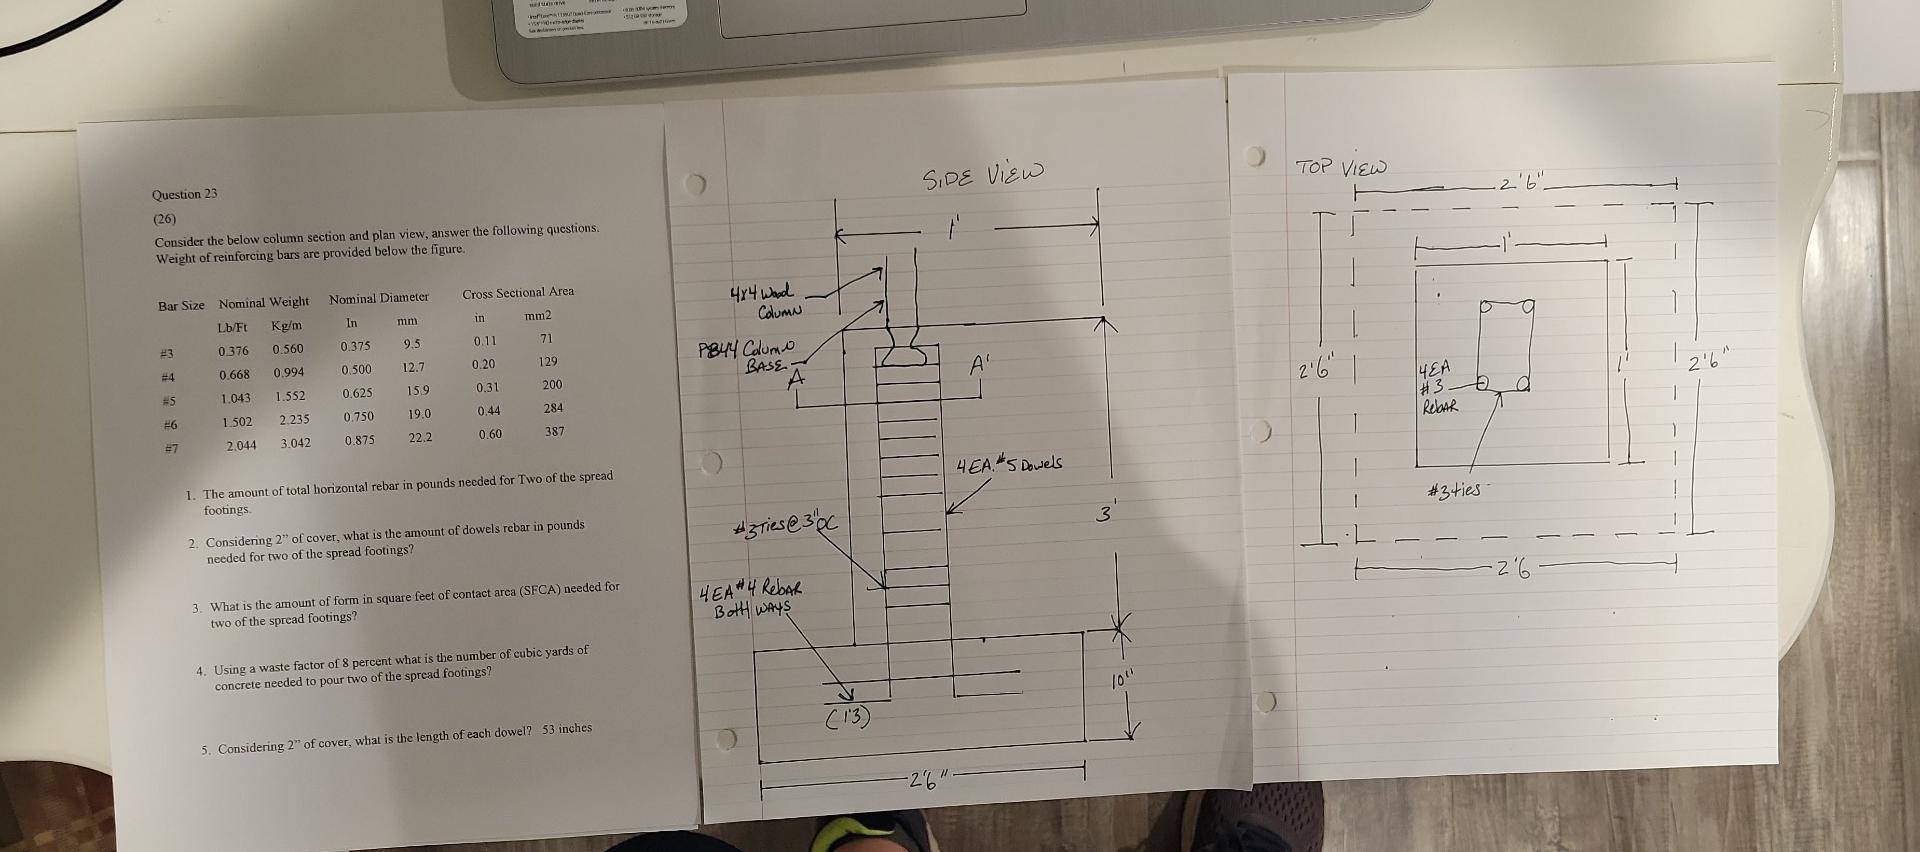 Question 23
(26)
Consider the below column section and plan view, answer the following questions.
Weight of reinforcing bars are provided below the figure.
Bar Size Nominal Weight Nominal Diameter Cross Sectional Area
Lb/Ft Kg/m In mm in mm2
#3 0.376 0.560 0.375 9.5 0.11 71
#4 0.668 0.994 0.500 12.7 0.20 129
#5 1.043 1.552 0.625 15.9 0.31 200
#6 1.502 2.235 0.750 19.0 0.44 284
#7 2.044 3.042 0.875 22.2 0.60 387
1. The amount of total horizontal rebar in pounds needed for Two of the spread
footings.
2. Considering 2" of cover, what is the amount of dowels rebar in pounds
needed for two of the spread footings?
3. What is the amount of form in square feet of contact area (SFCA) needed for
two of the spread footings?
4. Using a waste factor of 8 percent what is the number of cubic yards of
concrete needed to pour two of the spread footings?
5. Considering 2" of cover, what is the length of each dowel? 53 inches
SIDE VIEW
1'
4x4 Wood
Column
PB44 Column
BASE
A
A'
4 EA. #5 Dowels
3'
#3 Ties @ 3" OC
4 EA #4 Rebar
Both ways
(13)
10"
2'6"
TOP VIEW
2'6"
1'
2'6"
4 EA
#3
Rebar
1'
2'6"
#3 ties
2'6